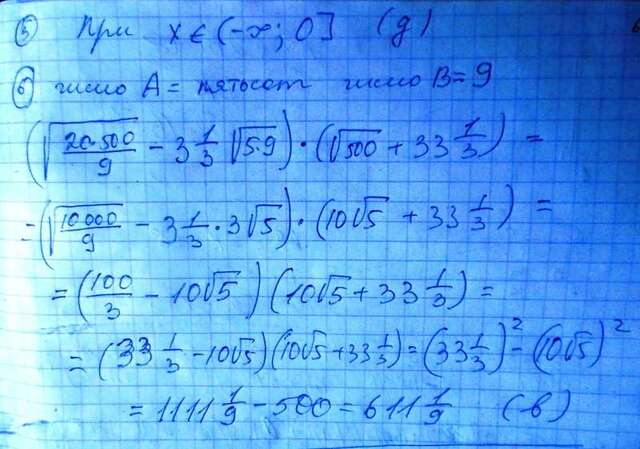 ⑤ При x ∈ (-∞; 0] (д)
⑥ число A = пятьсот число B = 9
(√(20·500/9) - 3 1/3 √(5·9)) · (√500 + 33 1/3) =
= (√(10 000/9) - 3 1/3 · 3√5) · (10√5 + 33 1/3) =
= (100/3 - 10√5) (10√5 + 33 1/3) =
= (33 1/3 - 10√5) (10√5 + 33 1/3) = (33 1/3)² - (10√5)²
= 1111 1/9 - 500 = 611 1/9 (в)